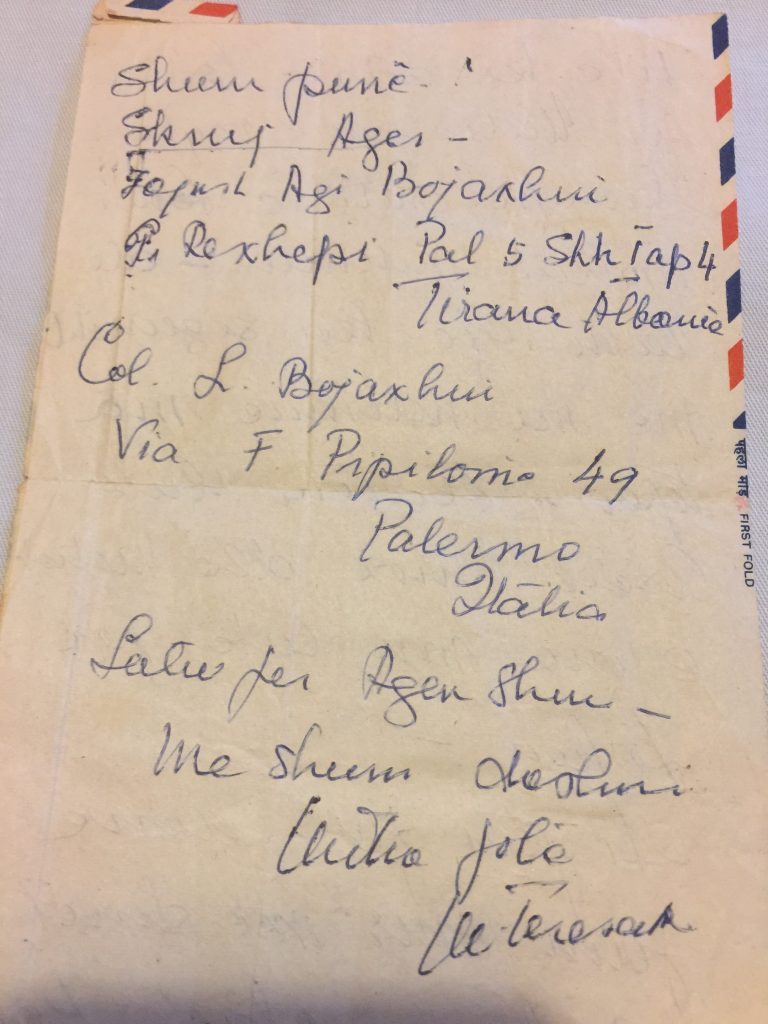 Shum punë.
Skruj Ages –
Agi Bojaxhiu
Rexhepi Pal 5 Shk Tap 4
Tirana Albania
Col. L. Bojaxhiu
Via F 49
Palermo
Itália
Lutu per Agen shum –
Me shum dashuri
jotē
M. Teresa
पहला मोड़ FIRST FOLD